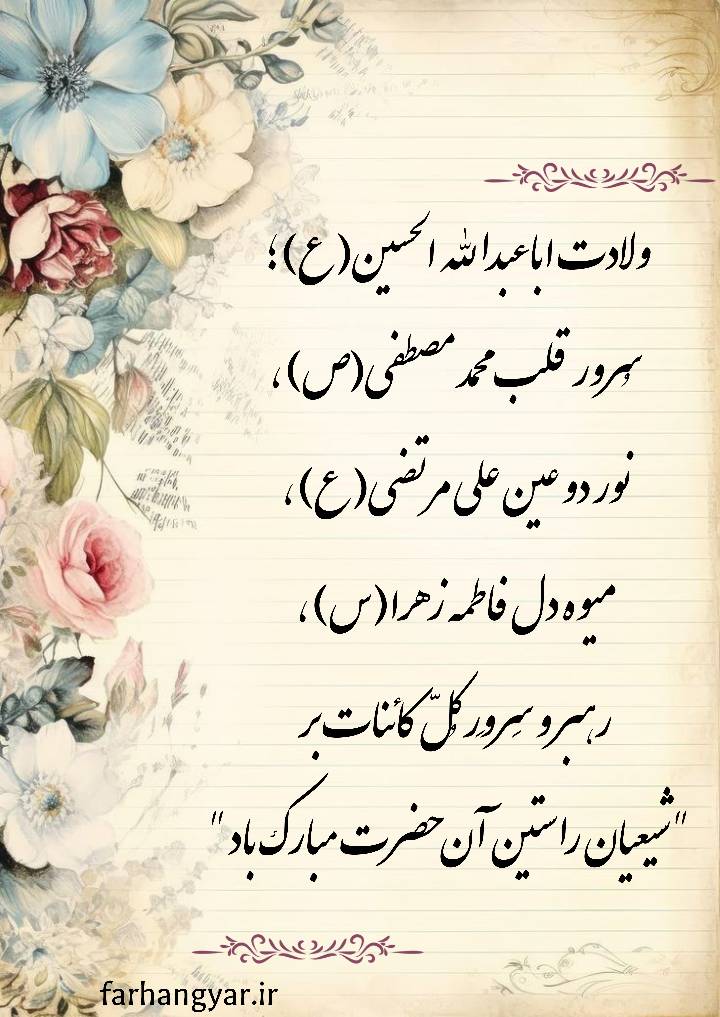 ولادت اباعبدالله الحسین(ع)؛
سُرور قلب محمد مصطفی(ص)،
نور دو عین علی مرتضی(ع)،
میوه دل فاطمه زهرا(س)،
رهبر و سِرورِ کلّ کائنات بر
"شیعیان راستین آن حضرت مبارک باد"
farhangyar.ir